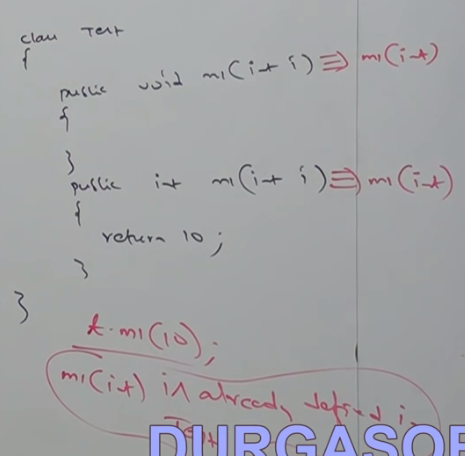 class Test
{
public void m1(int i) ⇒ m1(int)
{
}
public int m1(int i) ⇒ m1(int)
{
return 10;
}
}
t.m1(10);
m1(int) is already defined in
Test
DURGASOF